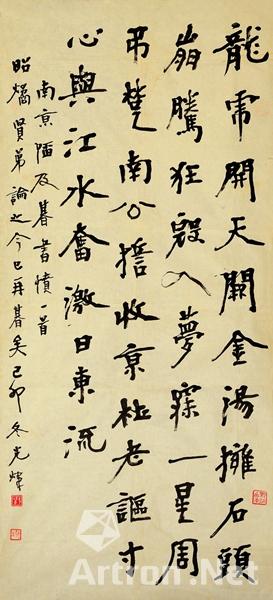 龍虎開天闕金湯擁石頭
崩騰狂寇入夢寐一星周
弔楚南公誓收京杜老謳寸
心與江水奮激日東流
南京陷及朞書憤一首
昭燏賢弟論之今已再朞矣己卯冬光煒
Artron.Net